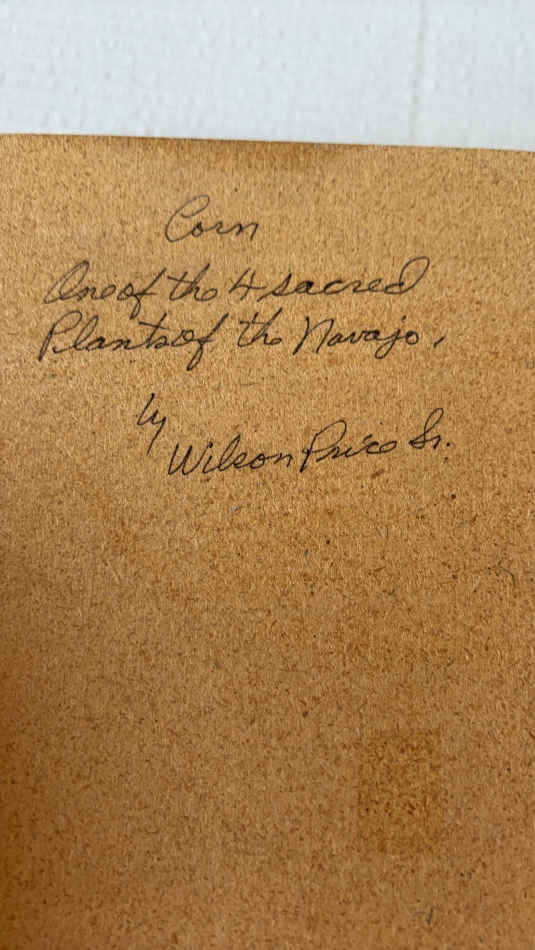 Corn
One of the 4 sacred
Plants of the Navajo.
by
Wilson Price Sr.